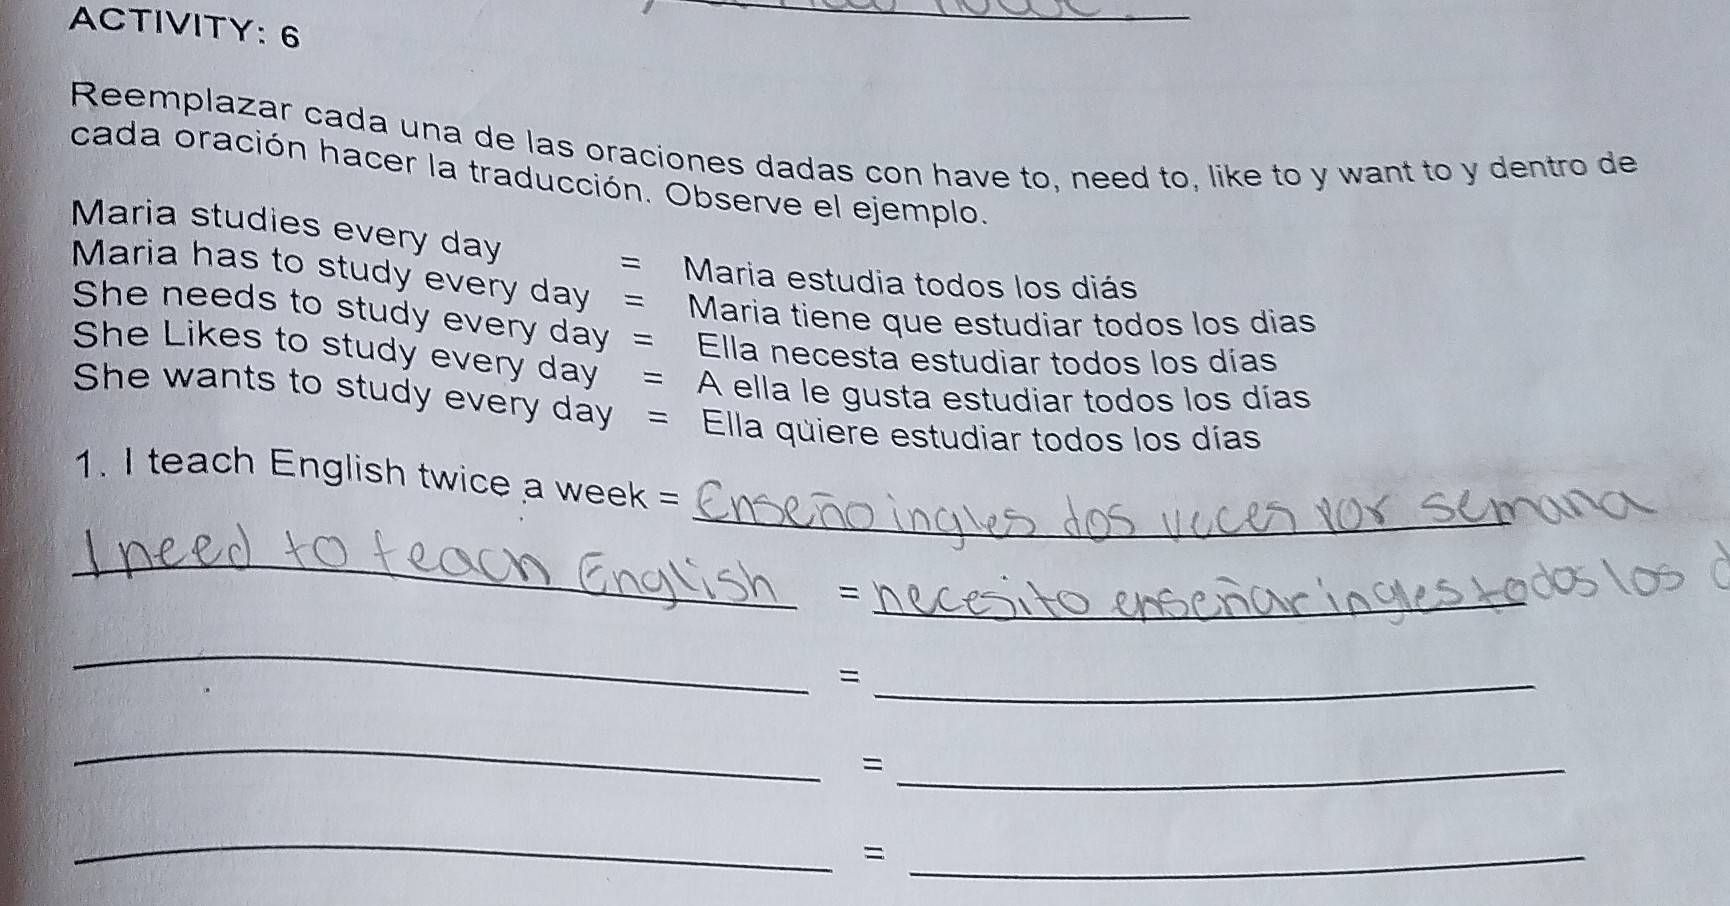 ACTIVITY: 6
Reemplazar cada una de las oraciones dadas con have to, need to, like to y want to y dentro de
cada oración hacer la traducción. Observe el ejemplo.
Maria studies every day = Maria estudia todos los diás
Maria has to study every day = Maria tiene que estudiar todos los dias
She needs to study every day = Ella necesta estudiar todos los días
She Likes to study every day = A ella le gusta estudiar todos los días
She wants to study every day = Ella quiere estudiar todos los días
1. I teach English twice a week = Enseño ingles dos veces por semana
I need to teach English = necesito enseñar ingles todos los
=
=
=